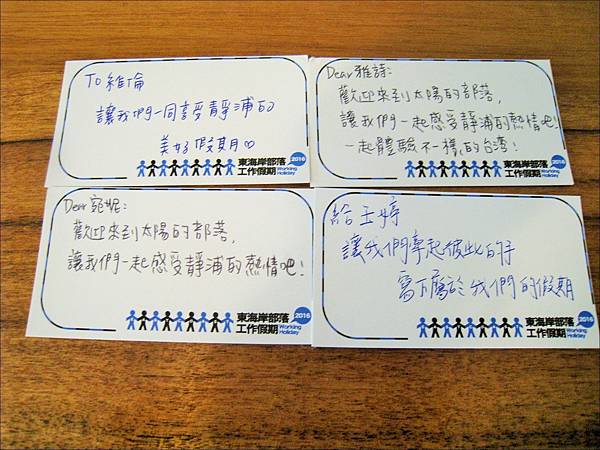 To 維倫
讓我們一同享受靜浦的
美好假期♡
東海岸部落
工作假期
2016
Working
Holiday
Dear 雅詩:
歡迎來到太陽的部落,
讓我們一起感受靜浦的熱情吧!
一起體驗不一樣的台湾!
東海岸部落
工作假期
2016
Working
Holiday
Dear 宛妮:
歡迎來到太陽的部落,
讓我們一起感受靜浦的熱情吧!
東海岸部落
工作假期
2016
Working
Holiday
給玉婷
讓我們牽起彼此的手
寫下屬於我們的假期
東海岸部落
工作假期
2016
Working
Holiday